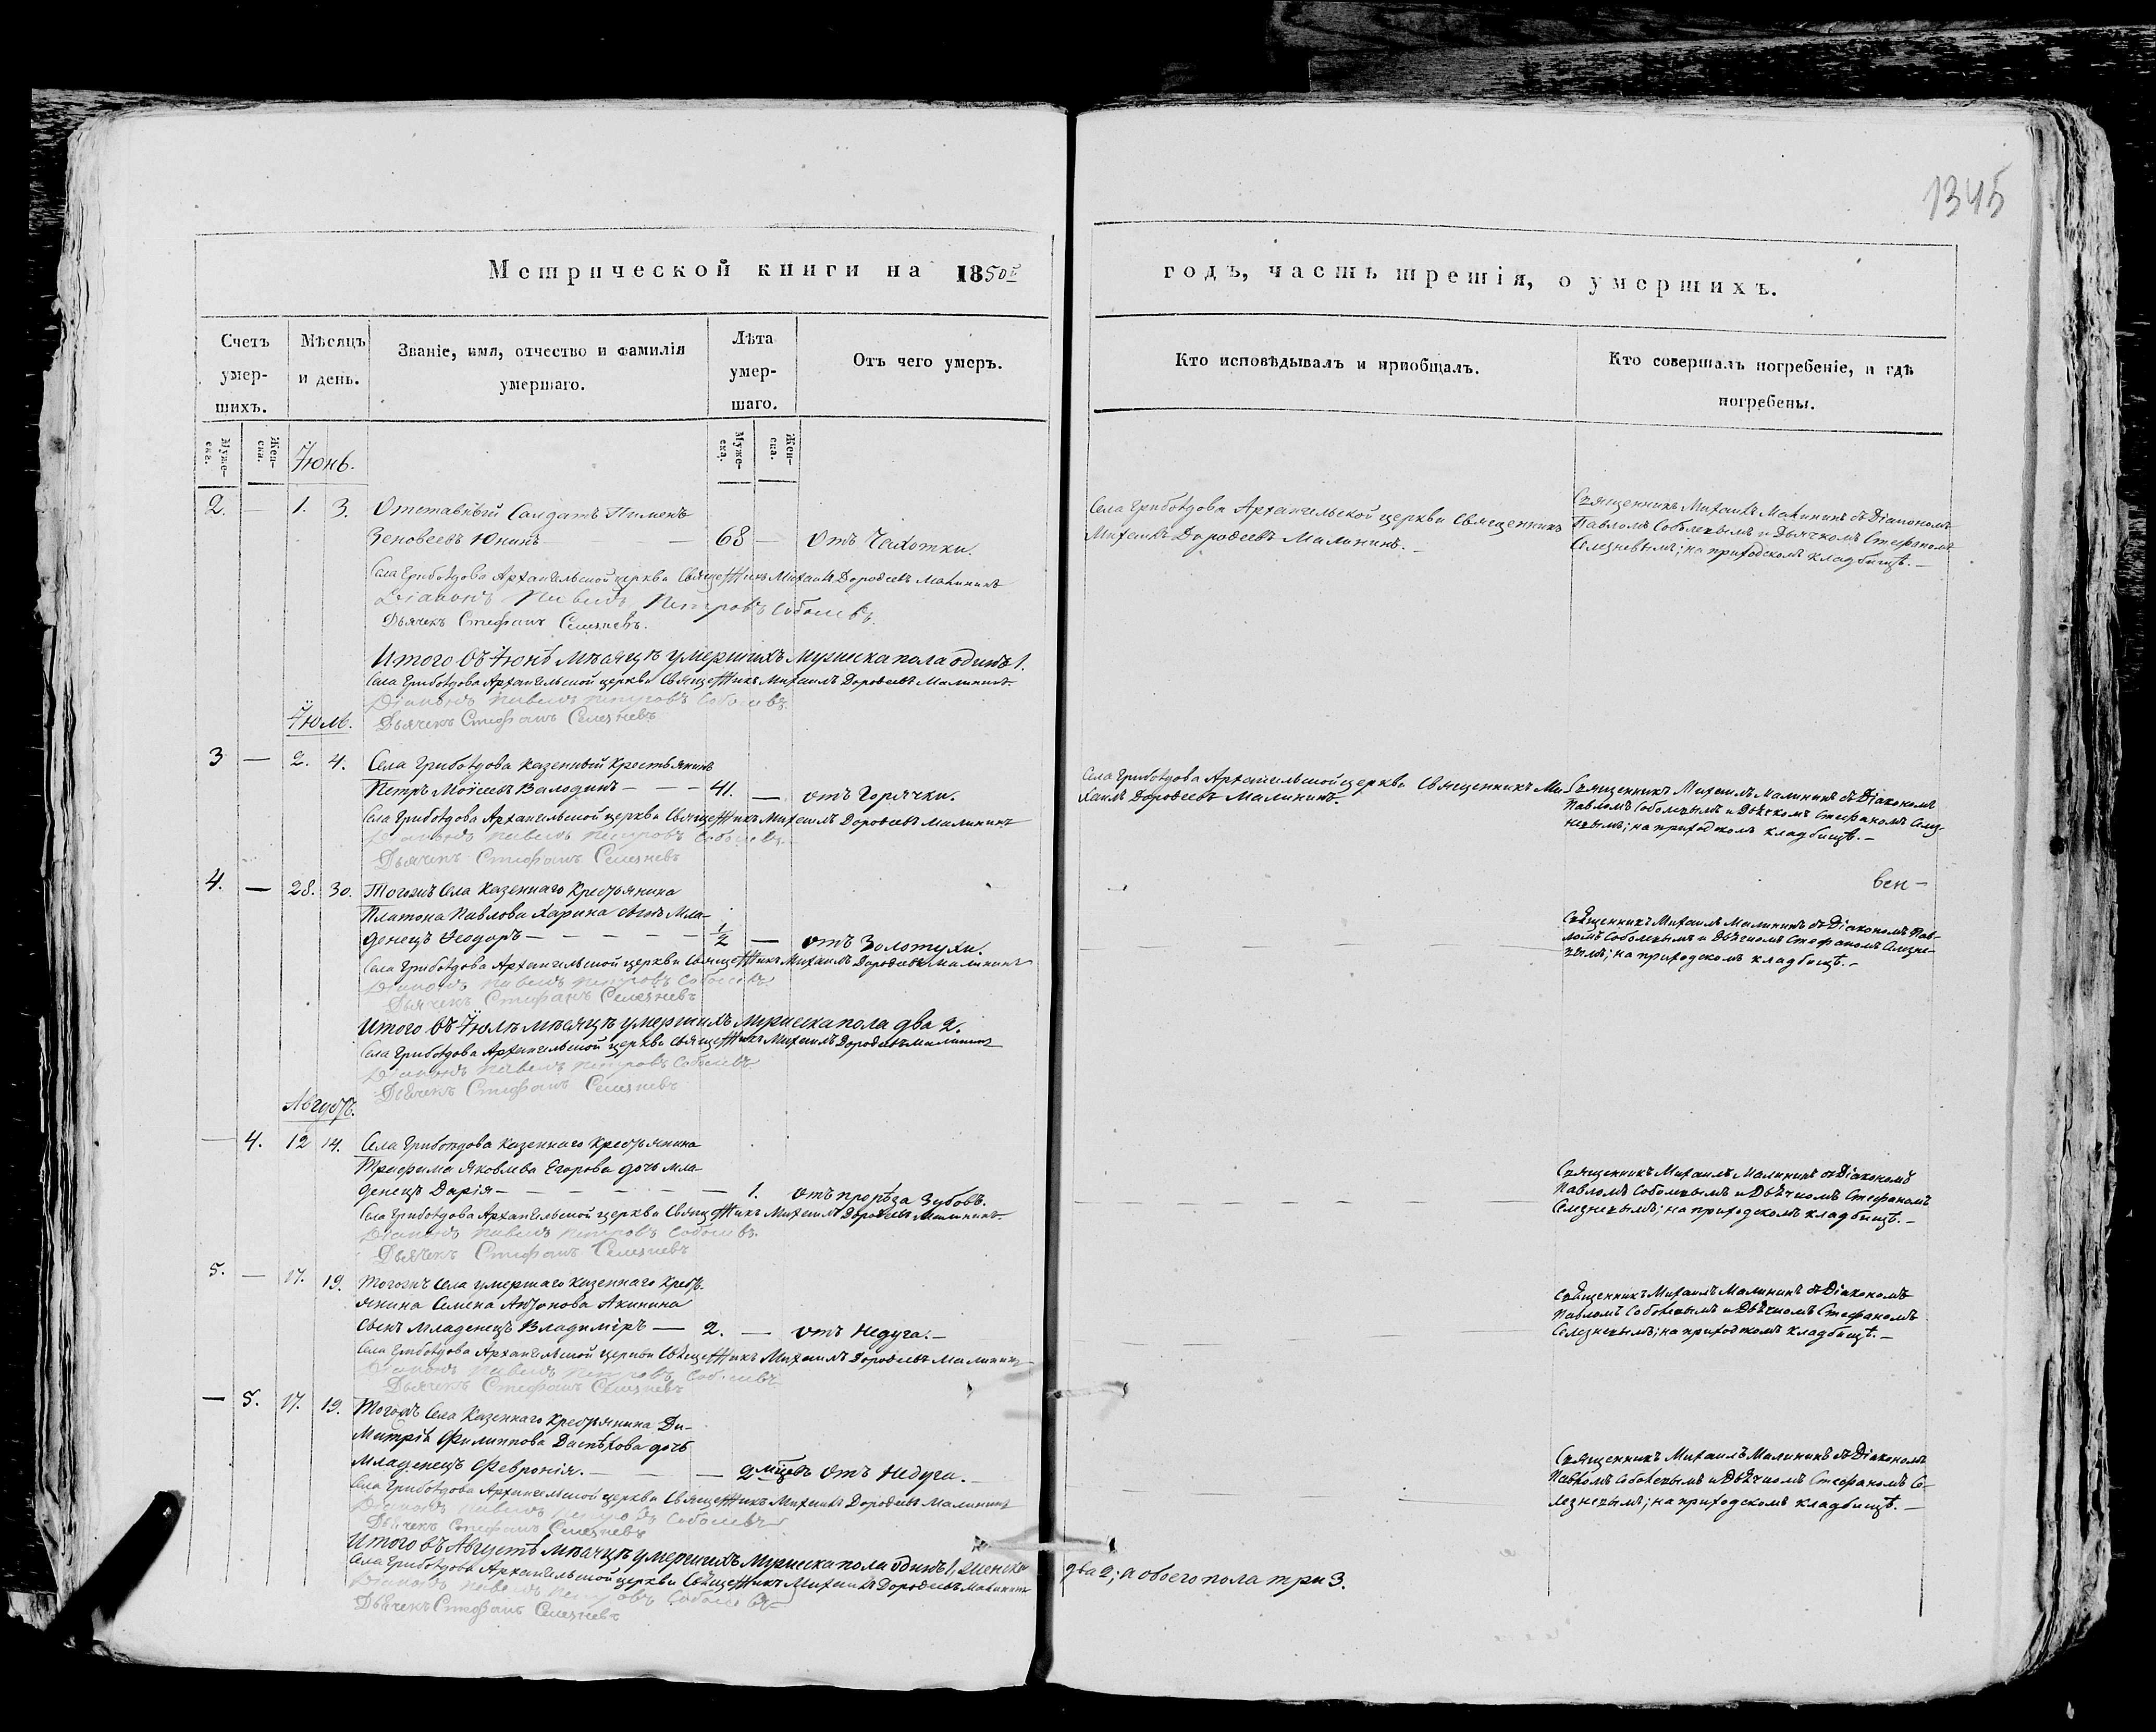 1345
Метрической книги на 1850й
годъ, часть третія, о умершихъ.
Счетъ умер-шихъ.
Мѣсяцъ и день.
Званіе, имя, отчество и фамилія умершаго.
Лѣта умер-шаго.
Отъ чего умеръ.
Кто исповѣдывалъ и пріобщалъ.
Кто совершалъ погребеніе, и гдѣ погребены.
Муже-ска.
Жен-ска.
Муже-ска.
Жен-ска.
Іюнь.
2. — 1. 3. Отставный Салдатъ Пименъ
Зеновеевъ Юнинъ — — 68 — Отъ Чахотки.
Села Грибоѣдова Архангельской церкви Священникъ
Михаилъ Дороѳеевъ Малининъ. —
Священникъ Михаилъ Малининъ съ Діакономъ
Павломъ Соболевымъ и Дьячкомъ Стефаномъ
Селезневымъ; на приходскомъ кладбищѣ. —
Села Грибоѣдова Архангельской церкви Священникъ Михаилъ Дороѳеевъ Малининъ
Діаконъ Павелъ Петровъ Соболевъ.
Дьячекъ Стефанъ Селезневъ.
Итого въ Іюнѣ мѣсяцѣ умершихъ мужеска пола одинъ 1.
Села Грибоѣдова Архангельской церкви Священникъ Михаилъ Дороѳеевъ Малининъ.
Діаконъ Павелъ Петровъ Соболевъ.
Дьячекъ Стефанъ Селезневъ
Іюль.
3 — 2. 4. Села Грибоѣдова казенный Крестьянинъ
Петръ Моѵсеевъ Валодинъ — — — 41. — отъ Горячки.
Села Грибоѣдова Архангельской церкви Священникъ Ми-
хаилъ Дороѳеевъ Малининъ.
Священникъ Михаилъ Малининъ съ Діакономъ
Павломъ Соболевымъ и Дьячкомъ Стефаномъ Селез-
невымъ; на приходскомъ кладбищѣ. —
Села Грибоѣдова Архангельской церкви Священникъ Михаилъ Дороѳеевъ Малининъ
Діаконъ Павелъ Петровъ Соболевъ.
Дьячекъ Стефанъ Селезневъ
4. — 28. 30. Тогожъ Села казеннаго Крестьянина
Платона Павлова Харина сынъ Мла-
денецъ Ѳеодоръ — — — — — 1/2 — отъ Золотухи.
Священникъ Михаилъ Малининъ съ Діакономъ Пав-
ломъ Соболевымъ и Дьячкомъ Стефаномъ Селезне-
вымъ; на приходскомъ кладбищѣ. —
Села Грибоѣдова Архангельской церкви Священникъ Михаилъ Дороѳеевъ Малининъ
Діаконъ Павелъ Петровъ Соболевъ
Дьячекъ Стефанъ Селезневъ
Итого въ Іюлѣ мѣсяцѣ умершихъ мужеска пола два 2.
Села Грибоѣдова Архангельской церкви Священникъ Михаилъ Дороѳеевъ Малининъ
Діаконъ Павелъ Петровъ Соболевъ
Дьячекъ Стефанъ Селезневъ
Августъ.
— 4. 12 14. Села Грибоѣдова казеннаго Крестьянина
Трифима Яковлева Егорова дочь мла-
денецъ Дарія — — — — — — 1. отъ прорѣза Зубовъ.
Священникъ Михаилъ Малининъ съ Діакономъ
Павломъ Соболевымъ и Дьячкомъ Стефаномъ
Селезневымъ; на приходскомъ кладбищѣ. —
Села Грибоѣдова Архангельской церкви Священникъ Михаилъ Дороѳеевъ Малининъ.
Діаконъ Павелъ Петровъ Соболевъ.
Дьячекъ Стефанъ Селезневъ
5. — 17. 19. Тогожъ Села умершаго казеннаго Кресть-
янина Семена Антонова Акинина
сынъ младенецъ Владиміръ — 2. — отъ Недуга. —
Священникъ Михаилъ Малининъ съ Діакономъ
Павломъ Соболевымъ и Дьячкомъ Стефаномъ
Селезневымъ; на приходскомъ кладбищѣ. —
Села Грибоѣдова Архангельской церкви Священникъ Михаилъ Дороѳеевъ Малининъ
Діаконъ Павелъ Петровъ Соболевъ
Дьячекъ Стефанъ Селезневъ
— 5. 17. 19. Тогожъ Села Казеннаго Крестьянина Ди-
митрія Филиппова дочь
Младенецъ Февронія. — — — 2 мѣцевъ отъ Недуга. —
Священникъ Михаилъ Малининъ съ Діакономъ
Павломъ Соболевымъ и Дьячкомъ Стефаномъ Се-
лезневымъ; на приходскомъ кладбищѣ. —
Села Грибоѣдова Архангельской церкви Священникъ Михаилъ Дороѳеевъ Малининъ
Діаконъ Павелъ Петровъ Соболевъ
Дьячекъ Стефанъ Селезневъ
Итого въ Августѣ мѣсяцѣ умершихъ мужеска пола одинъ 1, женска
два 2; а обоего пола три 3.
Села Грибоѣдова Архангельской церкви Священникъ Михаилъ Дороѳеевъ Малининъ
Діаконъ Павелъ Петровъ Соболевъ
Дьячекъ Стефанъ Селезневъ